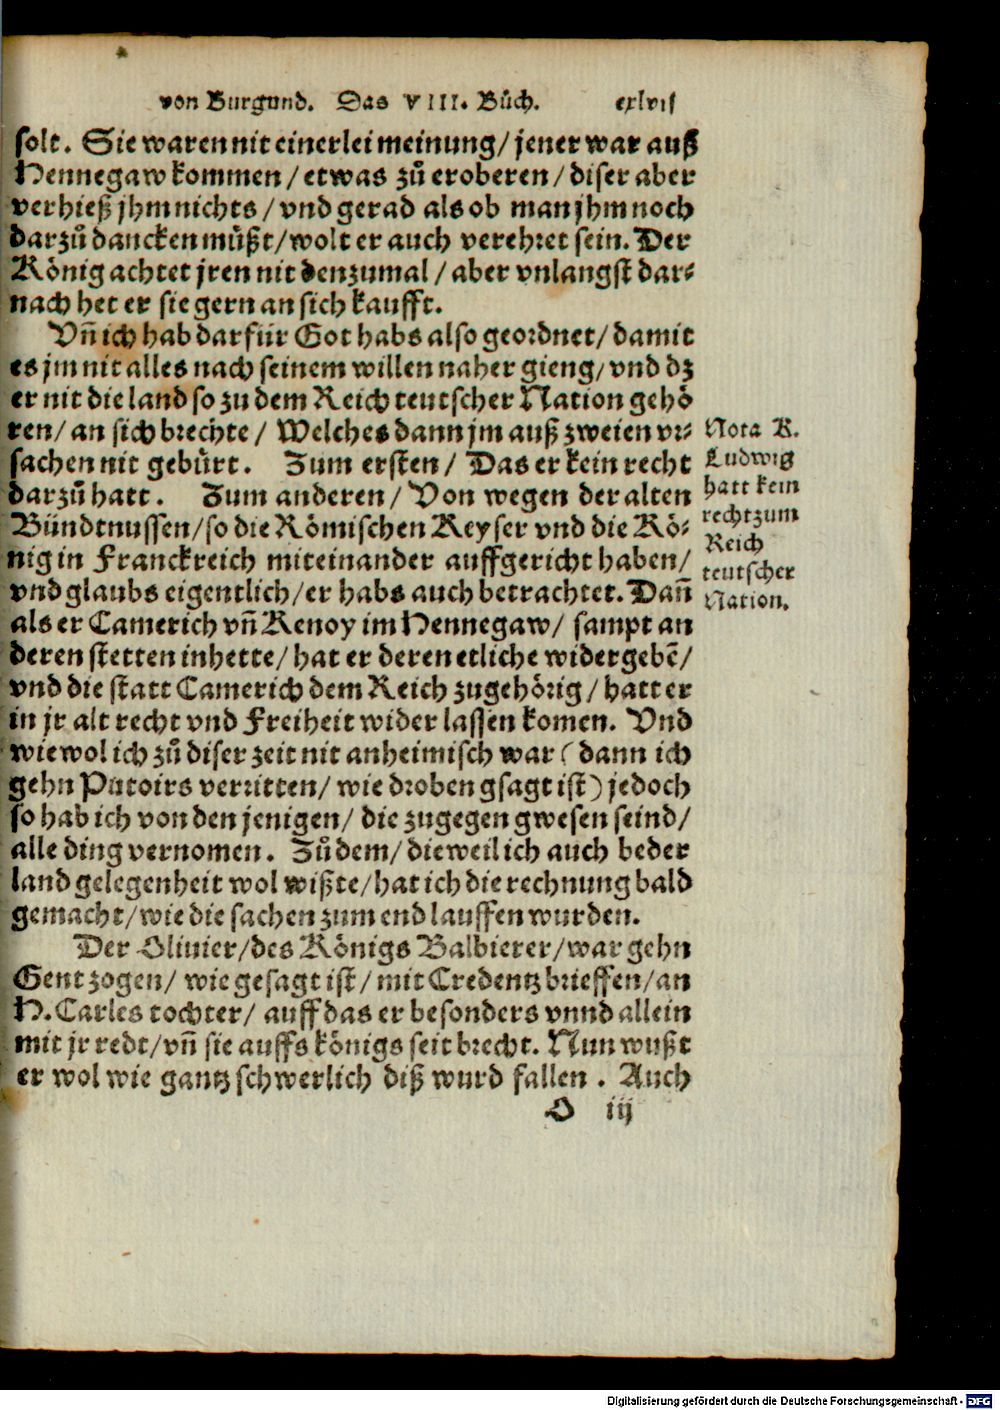 von Burgund. Das VIII. Bůch. cxlvij
solt. Sie waren nit einerlei meinung/ jener war auß
Hennegaw kommen/ etwas zů eroberen/ diser aber
verhieß jhm nichts/ vnd gerad als ob man jhm noch
darzů dancken müßt/ wolt er auch verehret sein. Der
König achtet jren nit denzumal/ aber vnlangst dar-
nach het er sie gern an sich kaufft.
Vñ ich hab darfür Got habs also geordnet/ damit
es jm nit alles nach seinem willen naher gieng/ vnd dz
er nit die land so zu dem Reich teutscher Nation gehö
ren/ an sich brechte/ Welches dann jm auß zweien vr-
sachen nit gebürt. Zum ersten/ Das er kein recht
darzů hatt. Zum anderen/ Von wegen der alten
Bündtnussen/ so die Römischen Keyser vnd die Kö-
nig in Franckreich miteinander auffgericht haben/
vnd glaubs eigentlich/ er habs auch betrachtet. Dañ
als er Camerich vñ Kenoy im Hennegaw/ sampt an
deren stetten inhette/ hat er deren etliche widergebē/
vnd die statt Camerich dem Reich zugehörig/ hatt er
in jr alt recht vnd Freiheit wider lassen komen. Vnd
wiewol ich zů diser zeit nit anheimisch war (dann ich
gehn Putoirs verritten/ wie droben gsagt ist) jedoch
so hab ich von den jenigen/ die zugegen gwesen seind/
alle ding vernomen. Zůdem/ dieweil ich auch beder
land gelegenheit wol wißte/ hat ich die rechnung bald
gemacht/ wie die sachen zum end lauffen wurden.
Der Olivier/ des Königs Balbierer/ war gehn
Gent zogen/ wie gesagt ist/ mit Credentzbrieffen/ an
H. Carles tochter/ auff das er besonders vnnd allein
mit jr redt/ vñ sie auffs königs seit brecht. Nun wußt
er wol wie gantz schwerlich diß wurd fallen. Auch
O iij
Nota K.
Ludwig
hatt kein
recht zum
Reich
teutscher
Nation.
Digitalisierung gefördert durch die Deutsche Forschungsgemeinschaft - DFG